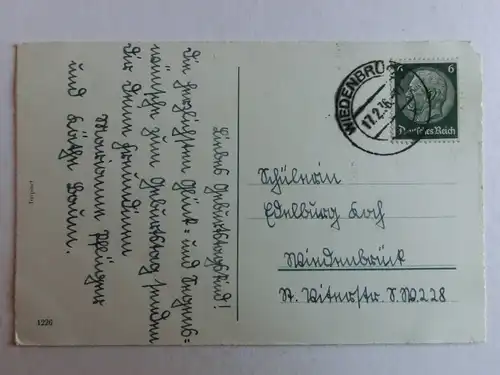 Liebes Geburtstagskind!
Die herzlichsten Glück= und Segens=
wünsche zum Geburtstag senden
Dir Deine Freundinnen
Marianne
und Käthe Baum.
WIEDENBRÜ
17.2.36
6 6
Deutsches Reich
Schülerin
Edelburg Koch
Wiedenbrück
St. Viterstr. S.W 228
1226